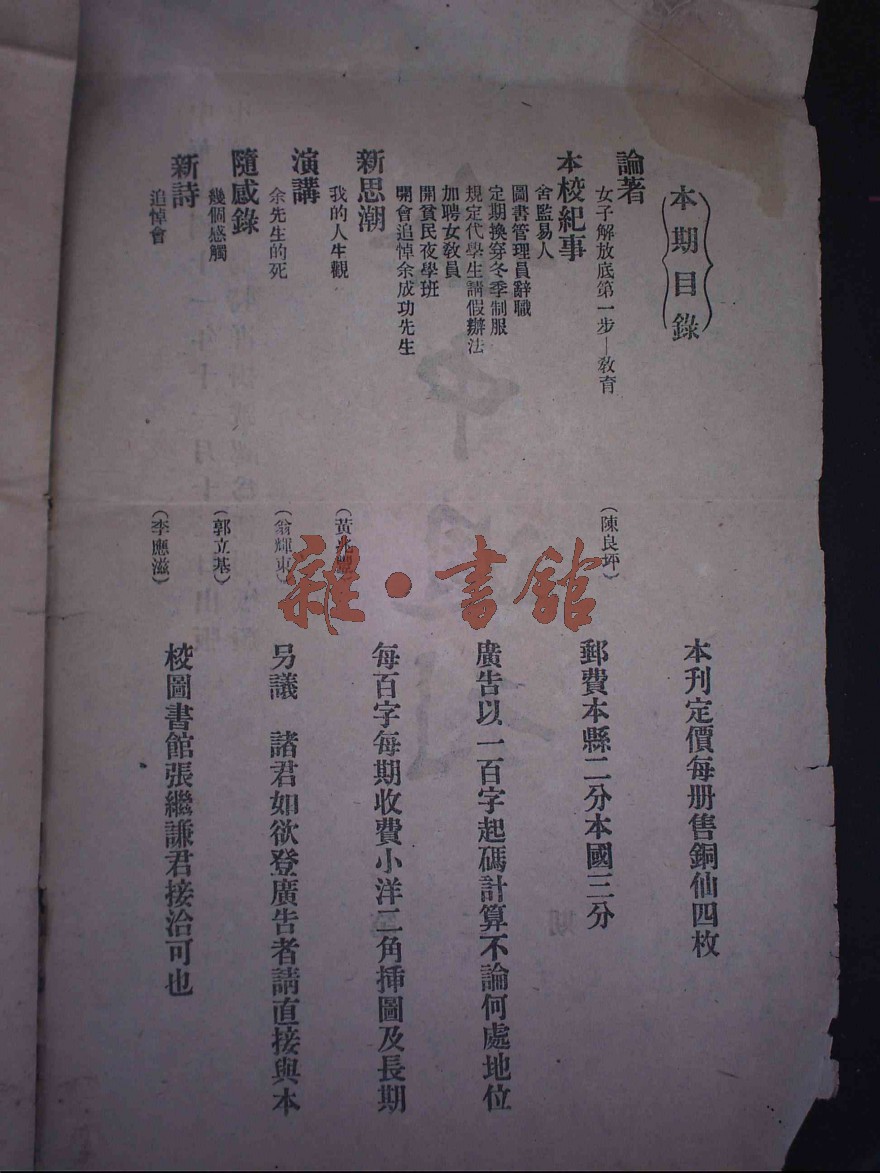 本期目錄
論著
女子解放底第一步—教育
（陳良坪）
本校紀事
舍監易人
圖書管理員辭職
定期換穿冬季制服
規定代學生請假辦法
加聘女教員
開貧民夜學班
開會追悼余成功先生
新思潮
我的人生觀
（黃兆
演講
余先生的死
（翁輝東）
隨感錄
幾個感觸
（郭立基）
新詩
追悼會
（李應滋）
本刊定價每册售銅仙四枚
郵費本縣二分本國三分
廣告以一百字起碼計算不論何處地位
每百字每期收費小洋二角揷圖及長期
另議　諸君如欲登廣告者請直接與本
校圖書館張繼謙君接洽可也
雜·書館